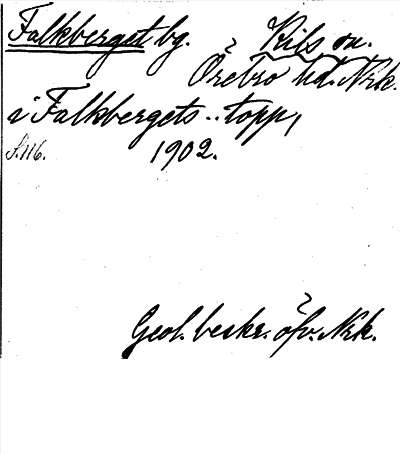 Falkberget bg. Kils sn.
Örebro hd. Nrk.
i Falkbergets .. topp,
S. 116. 1902.
Geol. beskr. öfv. Nrk.